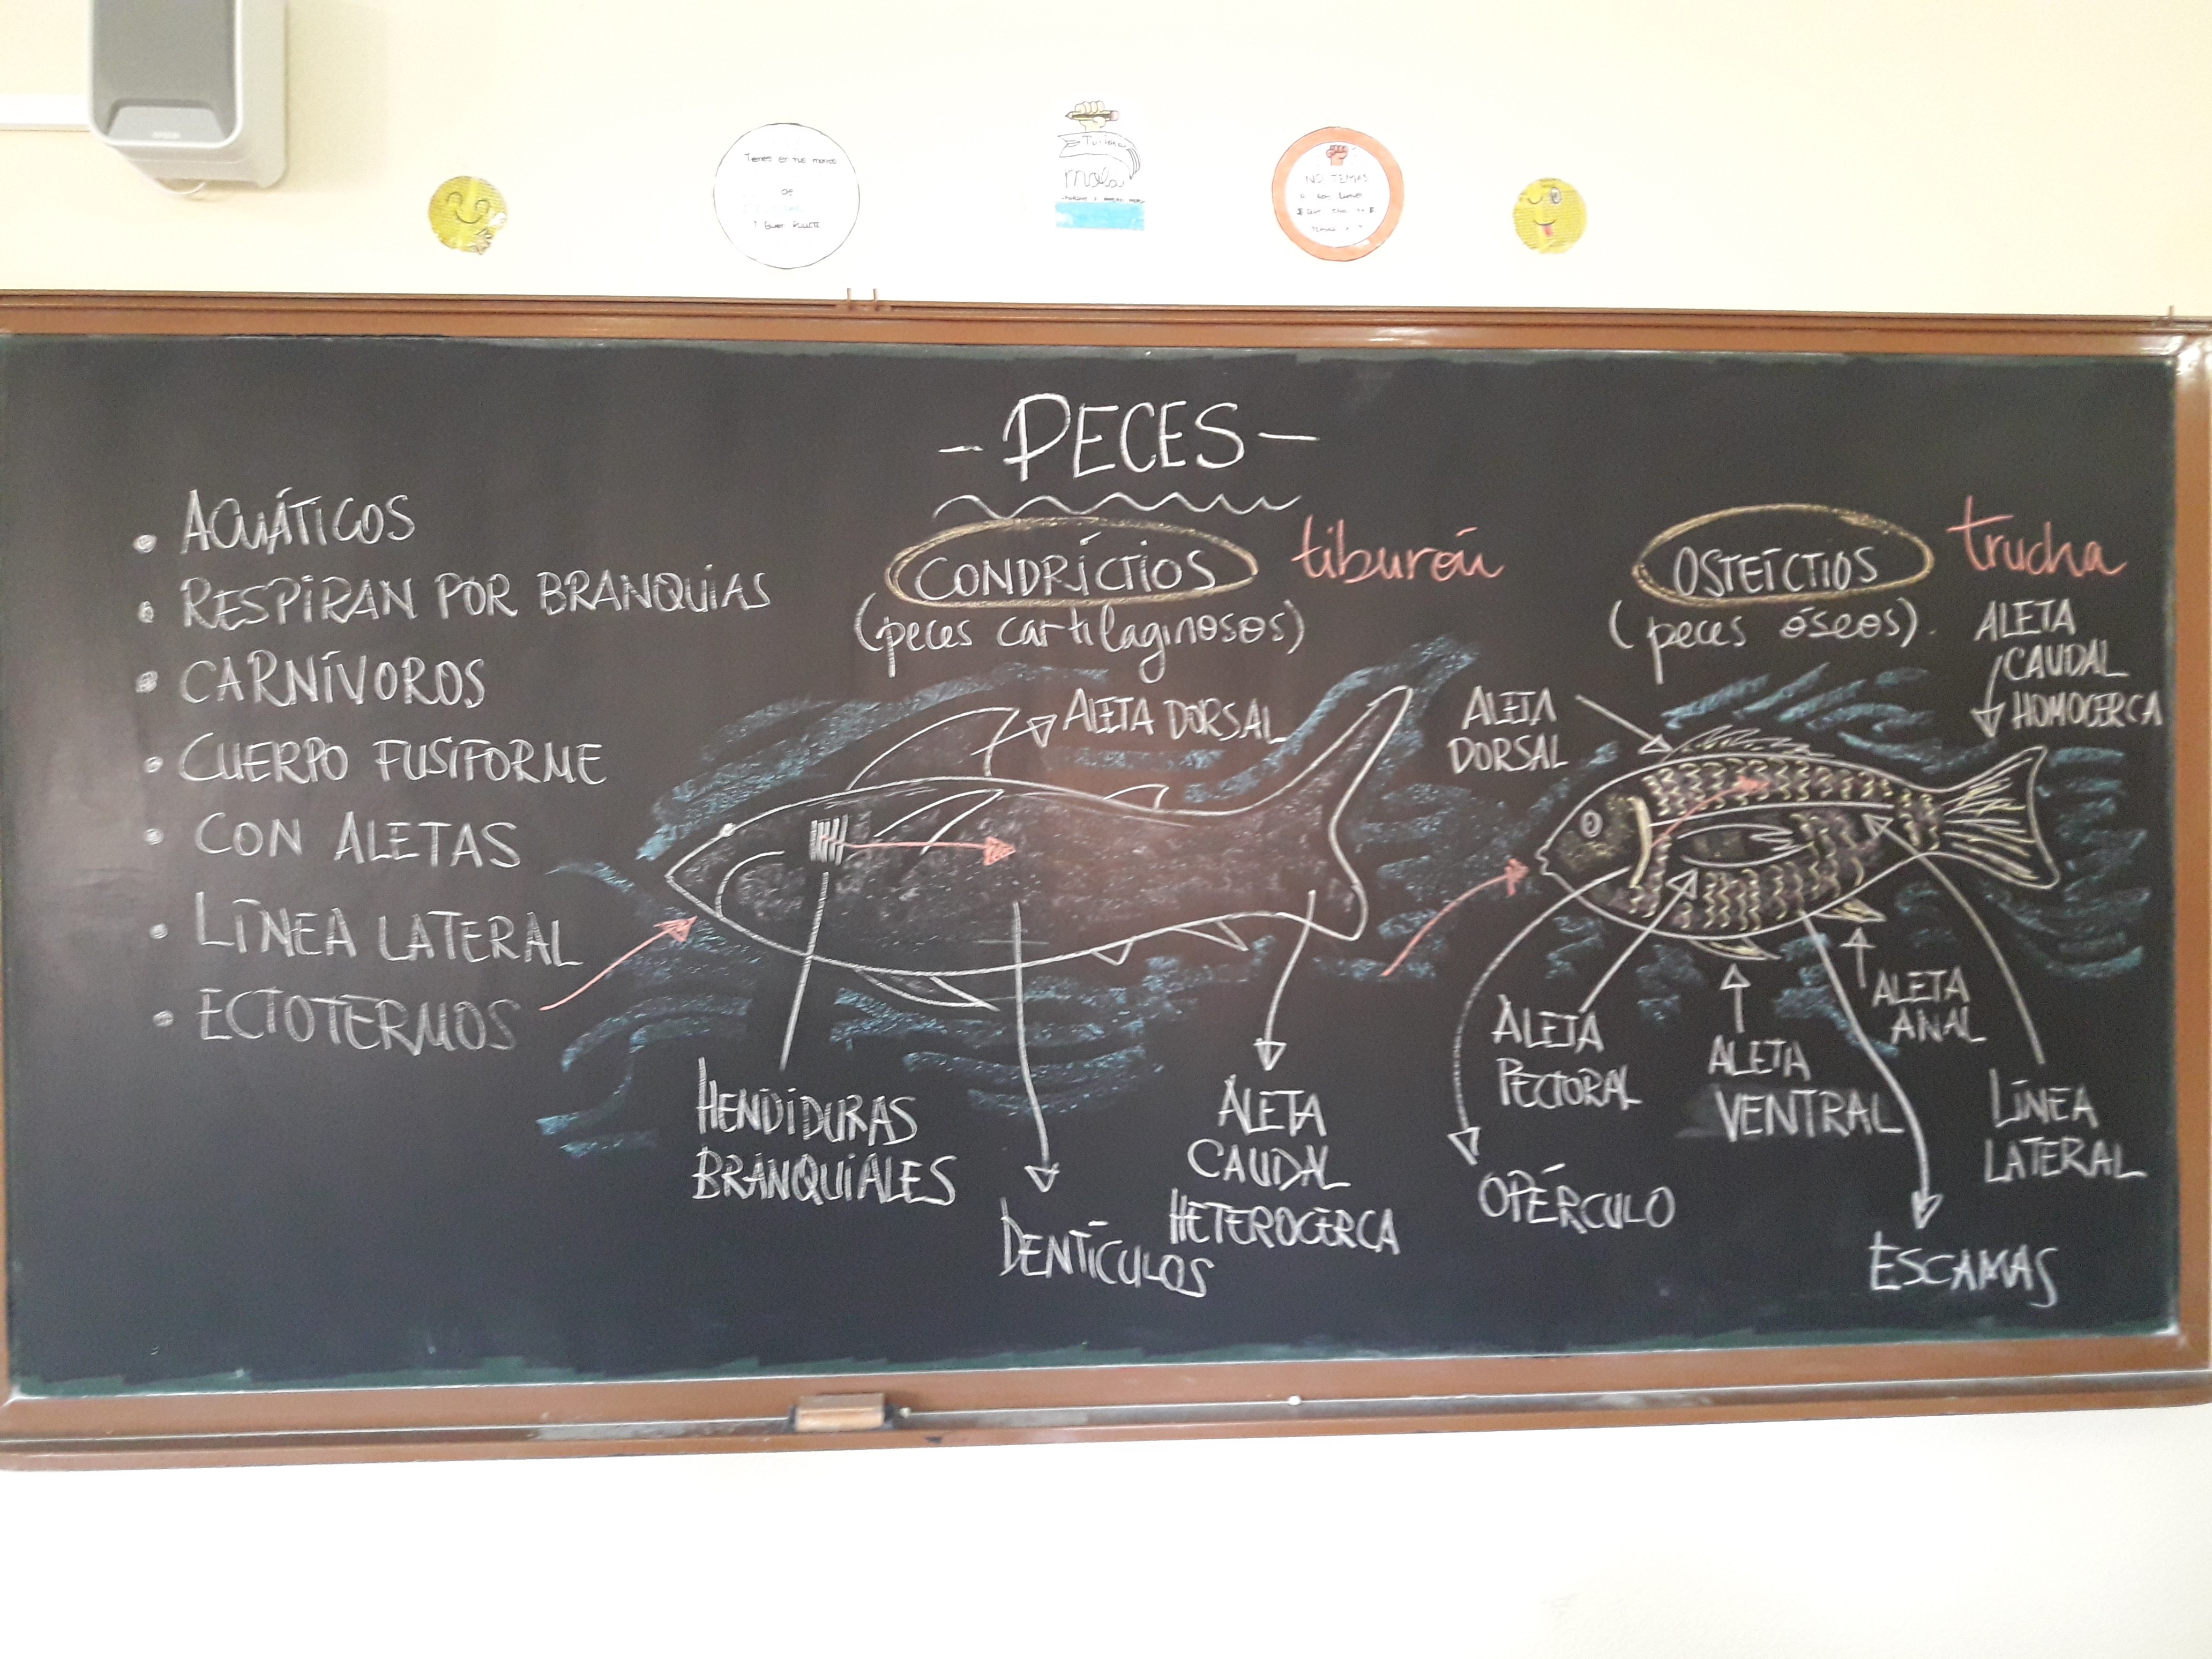 Tienes en tus manos
NO TEMAS
- PECES -
• ACUÁTICOS
• RESPIRAN POR BRANQUIAS
• CARNÍVOROS
• CUERPO FUSIFORME
• CON ALETAS
• LÍNEA LATERAL
• ECTOTERMOS
CONDRÍCTIOS tiburón
(peces cartilaginosos)
ALETA DORSAL
HENDIDURAS
BRANQUIALES
DENTÍCULOS
ALETA
CAUDAL
HETEROCERCA
OSTEÍCTIOS trucha
(peces óseos).
ALETA
CAUDAL
HOMOCERCA
ALETA
DORSAL
ALETA
PECTORAL
OPÉRCULO
ALETA
VENTRAL
ALETA
ANAL
LÍNEA
LATERAL
ESCAMAS